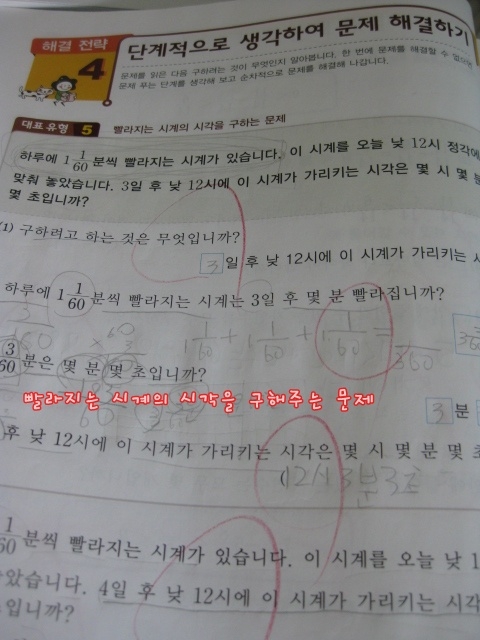 해결 전략
4
단계적으로 생각하여 문제 해결하기
문제를 읽은 다음 구하려는 것이 무엇인지 알아봅니다. 한 번에 문제를 해결할 수 없으면
문제 푸는 단계를 생각해 보고 순차적으로 문제를 해결해 나갑니다.
대표 유형 5 빨라지는 시계의 시각을 구하는 문제
하루에 1 1/60 분씩 빨라지는 시계가 있습니다. 이 시계를 오늘 낮 12시 정각에
맞춰 놓았습니다. 3일 후 낮 12시에 이 시계가 가리키는 시각은 몇 시 몇 분
몇 초입니까?
(1) 구하려고 하는 것은 무엇입니까?
3 일 후 낮 12시에 이 시계가 가리키는
하루에 1 1/60 분씩 빨라지는 시계는 3일 후 몇 분 빨라집니까?
1 1/60 + 1 1/60 + 1 1/60 =
3/60 분은 몇 분 몇 초입니까?
빨라지는 시계의 시각을 구해주는 문제
3 분
후 낮 12시에 이 시계가 가리키는 시각은 몇 시 몇 분 몇
12시 3분 3초
1/60 분씩 빨라지는 시계가 있습니다. 이 시계를 오늘 낮
았습니다. 4일 후 낮 12시에 이 시계가 가리키는 시각
입니까?